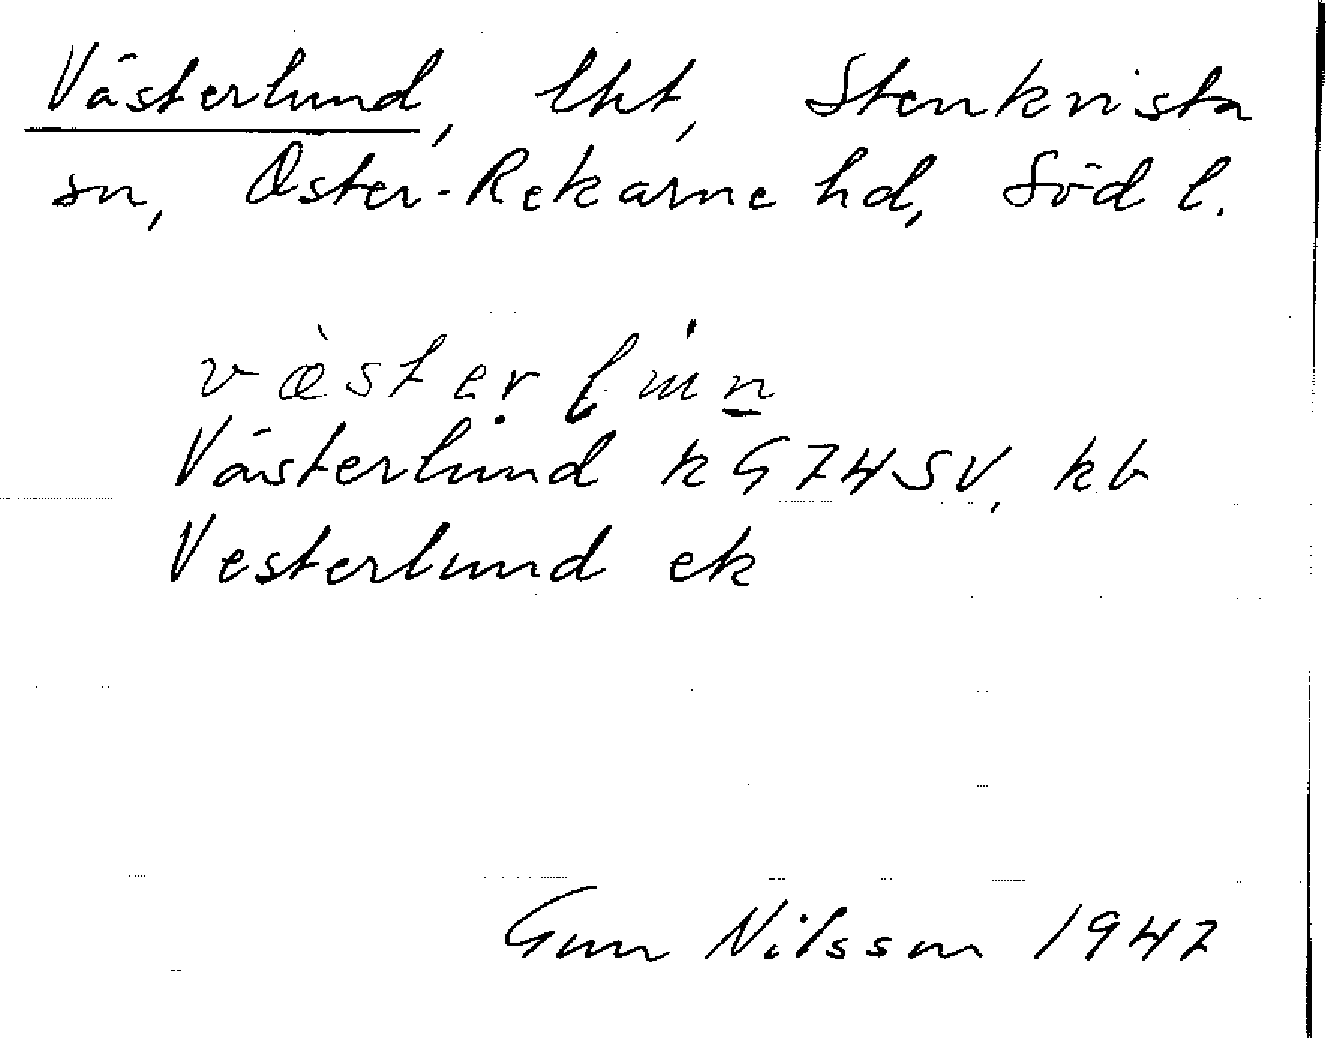 Västerlund, lht, Stenkvista
sn, Öster-Rekarne hd, Söd l.
Västerlund k G74SV, kb
Vesterlund ek
Gun Nilsson 1947